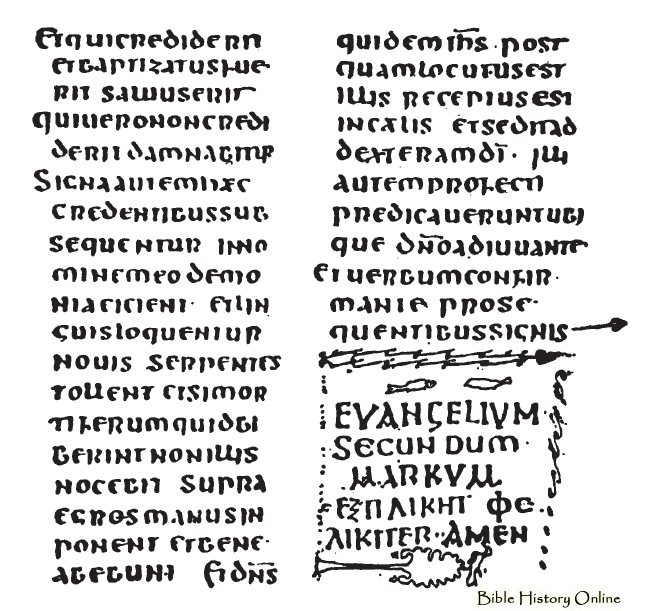 Etquicrediderit
etbaptizatusfue
rit saluuserit
quiuerononcredi
derit damnabitur
Signaautemhaec
credentibussub
sequentur inno
minemeo demo
niaeicient · etlin
guisloquentur
nouis serpentes
tollent etsimor
tiferumquidbi
berintnonillis
nocebit supra
egrosmanusin
ponent etbene·
abebunt Etdn̅s
quidemih̅s · post
quamlocutusest
illis receptusest
incaelis etseditad
dexteramdi̅ · illi
autemprofecti
predicaueruntubi
que dn̅oadiuuante
etuerbumconfir·
mante prose·
quentibussignis
EVANGELIVM·
SECUNDUM·
MARKVM
ΕΞΠΛΙΚΗΤ ΦΕ·
ΛIKITER··AMEN
Bible History Online